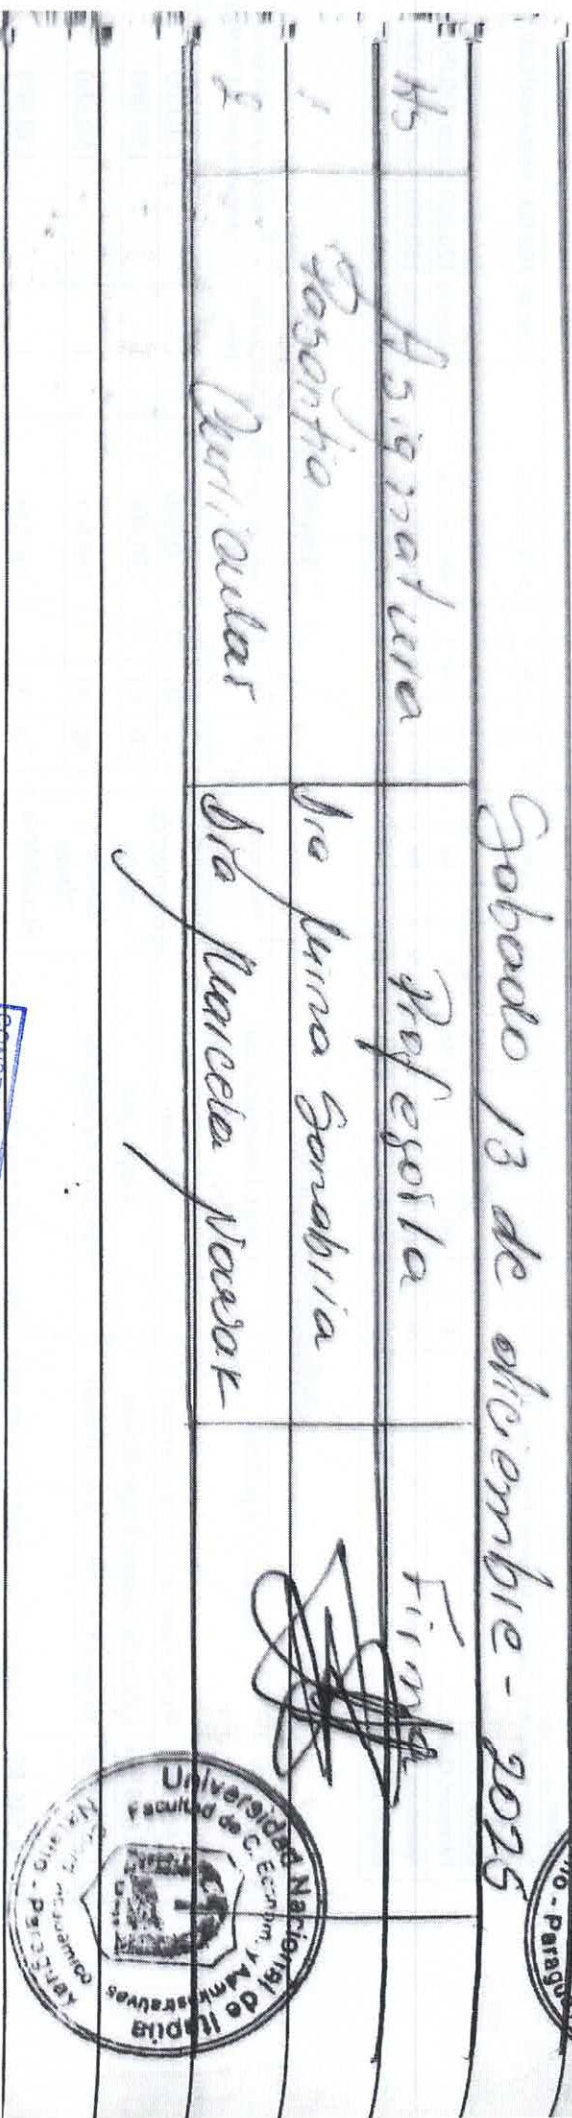 Sabado 13 de diciembre - 2025
Hs Asignatura Profesor/a Firma
1 Pasantia Dra Mirna Sanabria
2 Curricular Dra Marcela Nowak
Universidad Nacional de Itapúa
Facultad de C. Econom. y Administrativas
- Paraguay